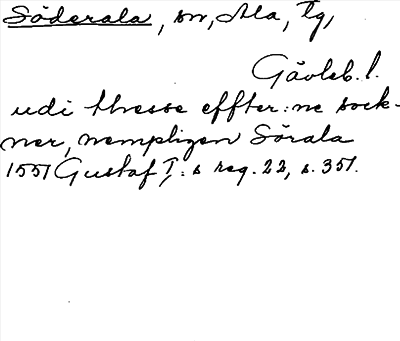 Söderala, sn, Ala, tg,
Gävleb. l.
udi thesse effter:ne sock-
ner, nempligen Sörala
1551 Gustaf I:s reg. 22, s. 351.